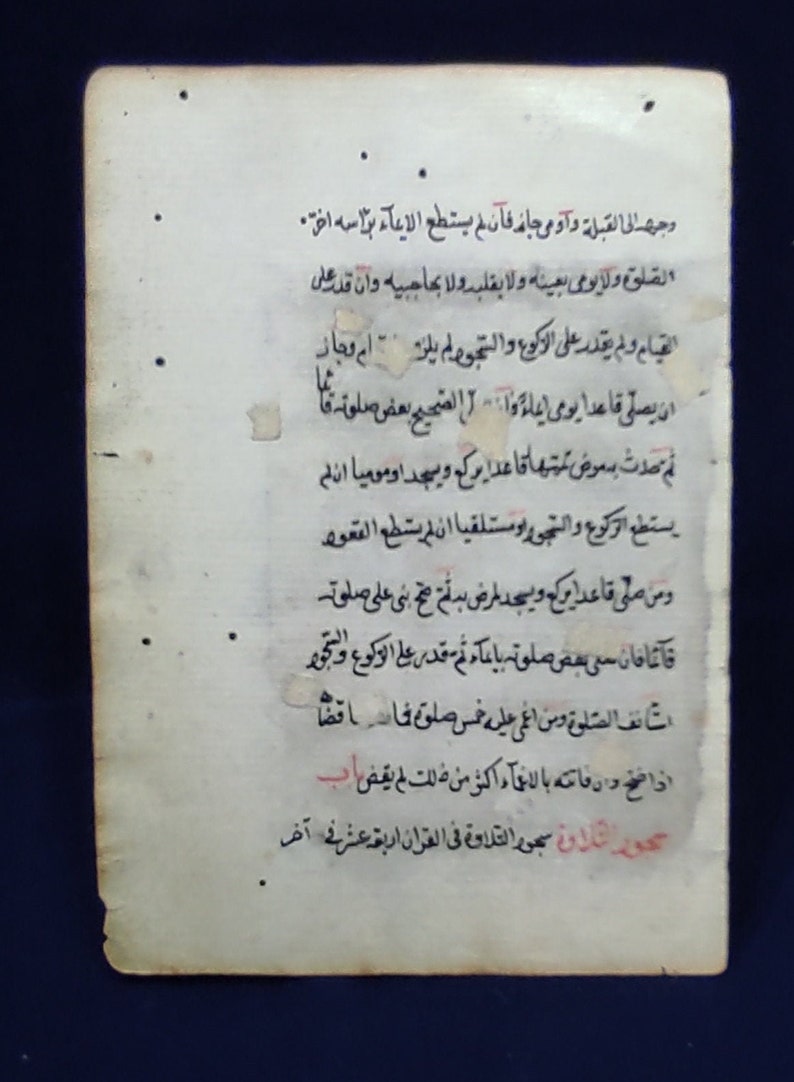 وجهه الى القبلة واومى جاز فان لم يستطع الايماء براسه اخر
الصلوة ولا يومى بعينه ولا بقلبه ولا بحاجبيه وان قدر على
القيام ولم يقدر على الركوع والسجود لم يلزمه ام وجاز
ان يصلى قاعدا يومى ايماءً وان الصحيح بعض صلوته قائما
ثم حدث به مرض تممها قاعدا يركع ويسجد او موميا ان لم
يستطع الركوع والسجود او مستلقيا ان لم يستطع القعود
ومن صلى قاعدا يركع ويسجد لمرض به ثم صح بنى على صلوته
قائما فان صلى بعض صلوته بايماء ثم قدر على الركوع والسجود
استانف الصلوة ومن اغمى عليه خمس صلوة فما قضاها
اذا صح وان فاتته بالاغماء اكثر من ذلك لم يقض باب
سجود التلاوة سجود التلاوة فى القران اربعة عشر فى آخر